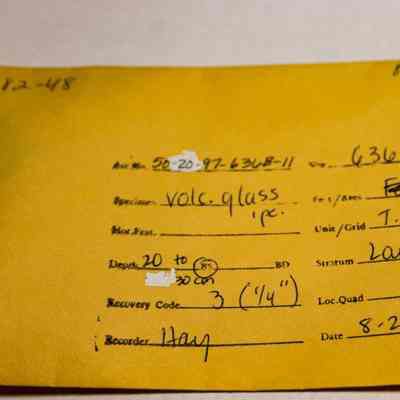 82-48
Acc No. 50-20-97-6368-11 636
Specimen volc. glass Fe t./Area
1pc.
Hor. Feat. Unit/Grid T.
Depth 20 to BS BD Stratum La
30 cm
Recovery Code 3 (1/4") Loc. Quad
Recorder Hay Date 8-2